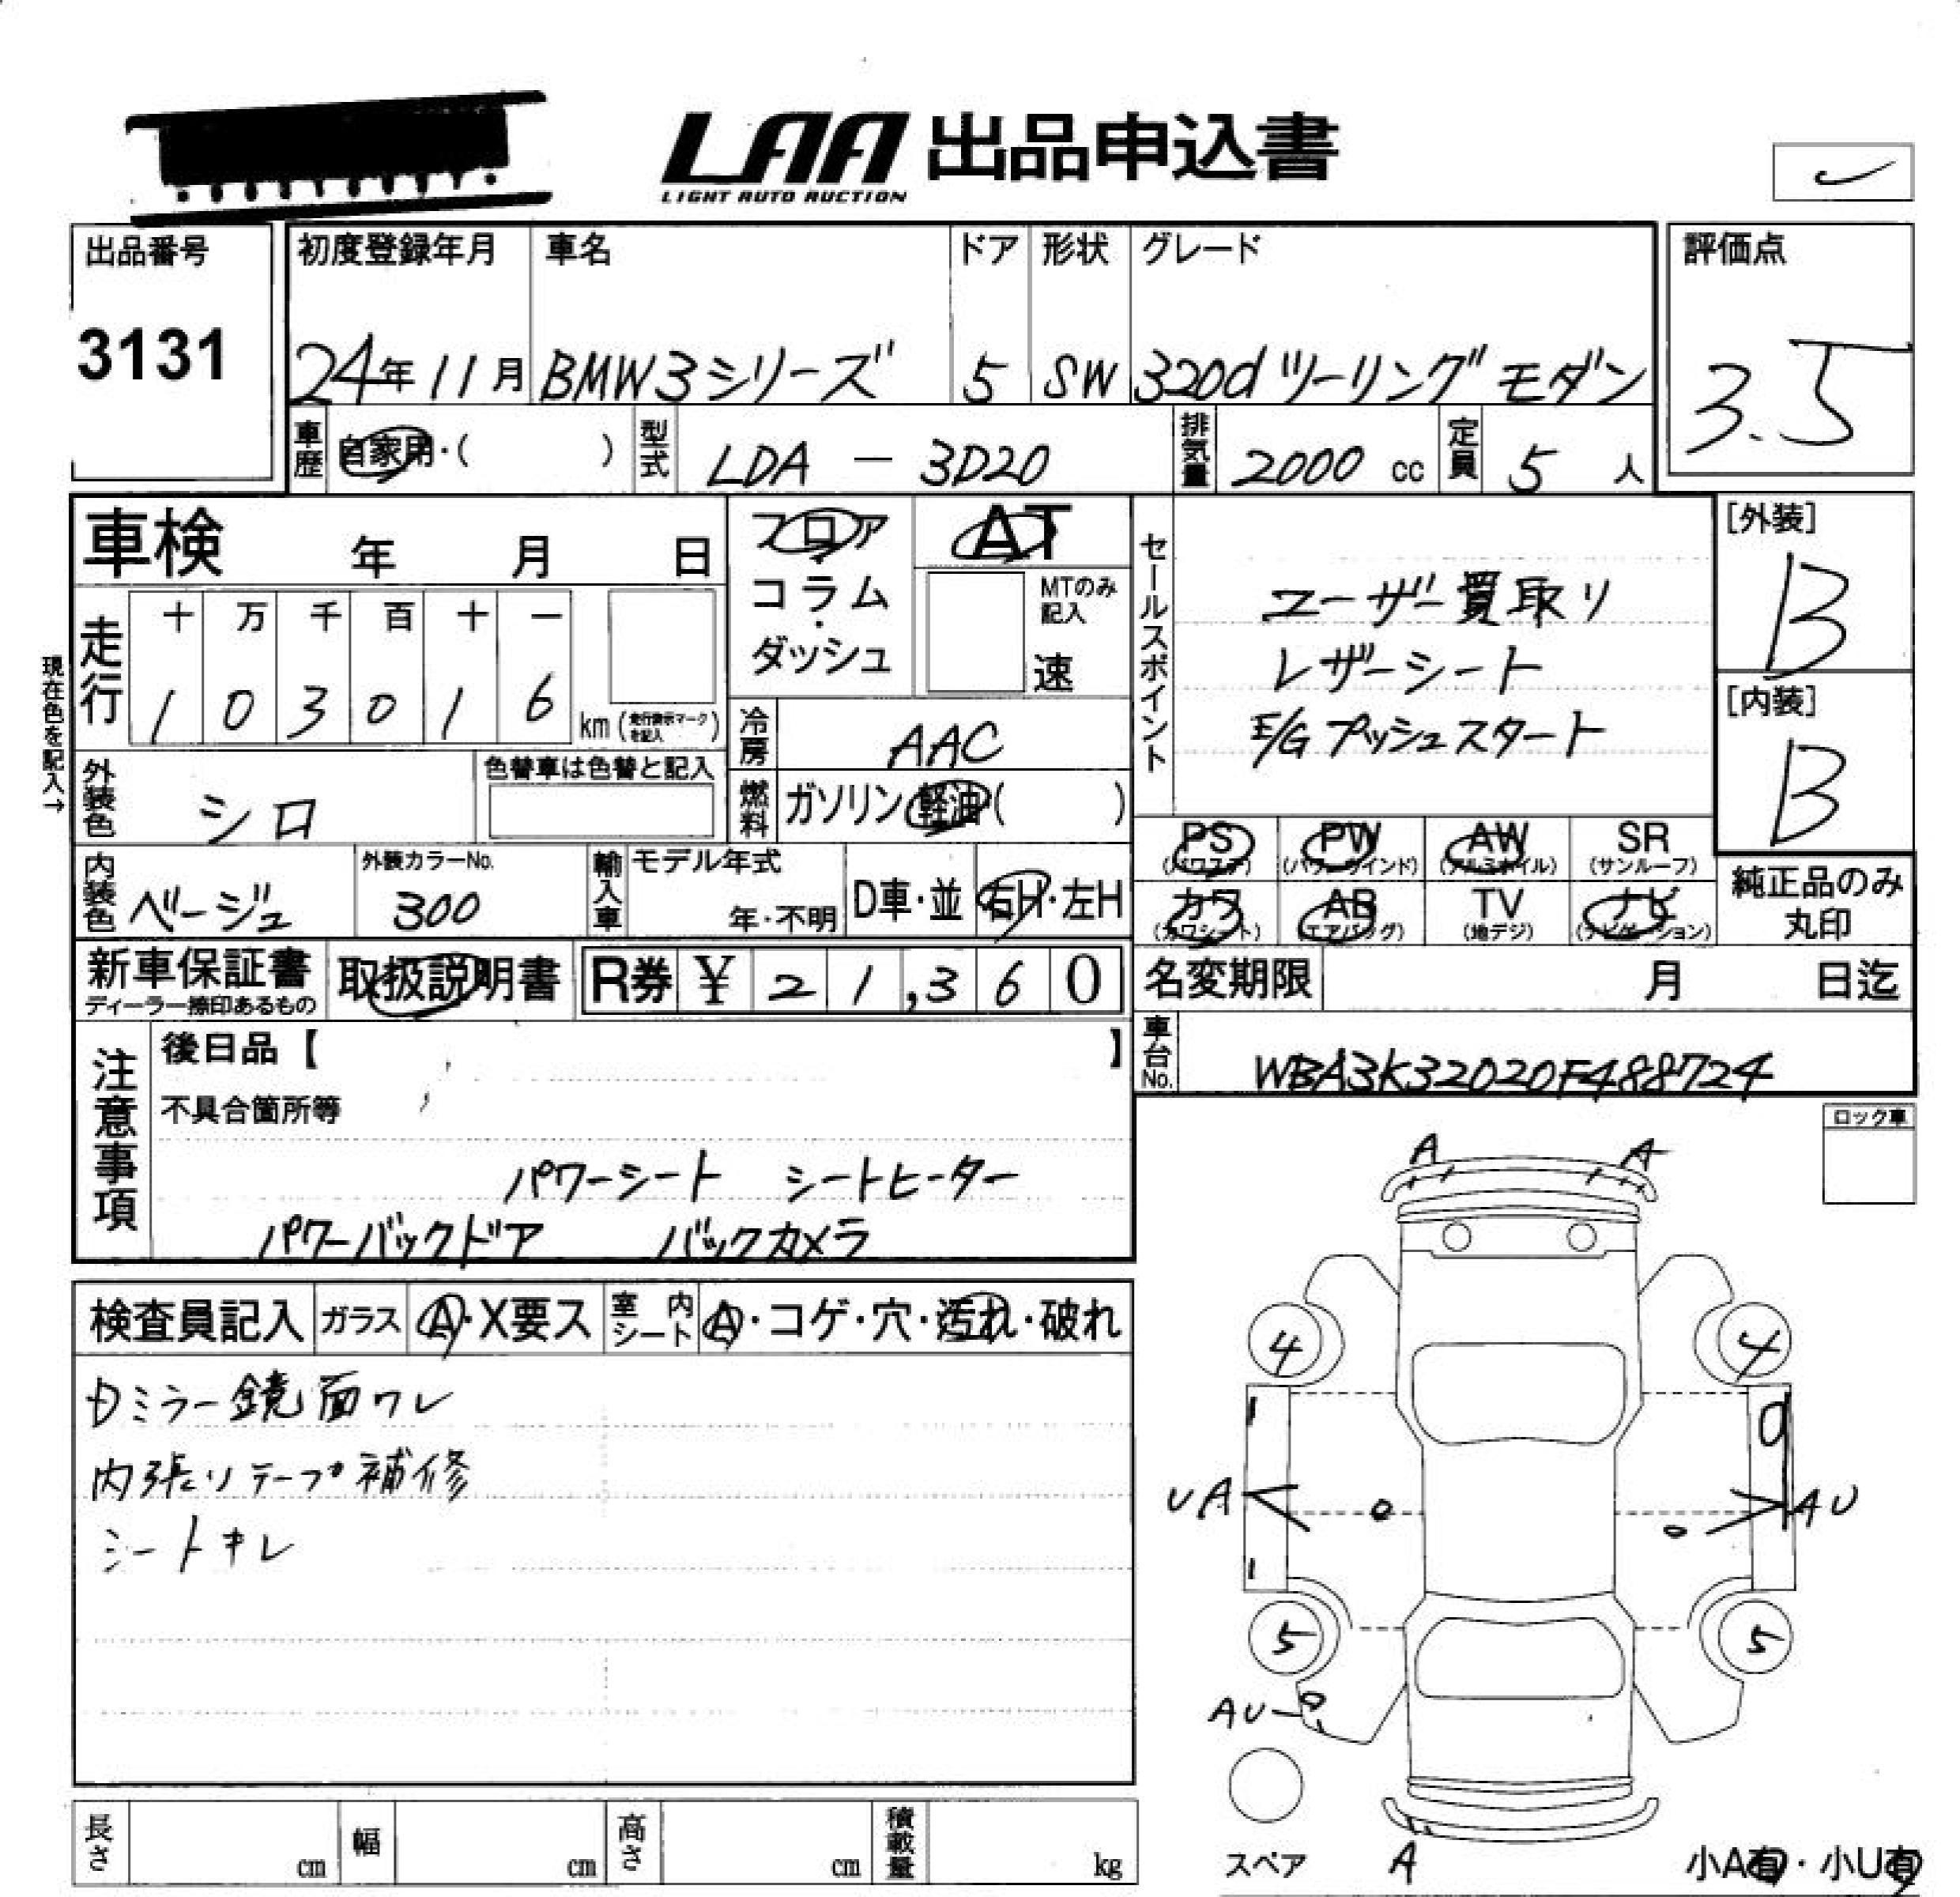 LAA 出品申込書
LIGHT AUTO AUCTION
出品番号 初度登録年月 車名 ドア 形状 グレード 評価点
3131 24年11月 BMW3シリーズ 5 SW 320d ツーリング モダン 3.5
車歴 自家用・( ) 型式 LDA - 3D20 排気量 2000 cc 定員 5 人
車検 年 月 日
フロア・コラム・ダッシュ
AT
MTのみ記入
速
セールスポイント
ユーザー買取リ
レザーシート
E/G プッシュスタート
[外装]
B
[内装]
B
現在色を記入→
走行 十 万 千 百 十 一
1 0 3 0 1 6 km (走行表示マークを記入)
冷房 AAC
外装色 シロ 色替車は色替と記入
燃料 ガソリン・軽油・( )
PS AW SR
PW
(パワステ) (パワーウインド) (アルミホイル) (サンルーフ)
カワ AB TV ナビ
(カワシート) (エアバッグ) (地デジ) (ナビゲーション)
純正品のみ
丸印
内装色 ベージュ 外装カラーNo. 300 輸入車 モデル年式 年・不明 D車・並 右H・左H
新車保証書 取扱説明書 R券 ¥ 21,360 名変期限 月 日迄
ディーラー捺印あるもの
注意事項 後日品【 】
車台No. WBA3K32020F488724
不具合箇所等
パワーシート シートヒーター
パワーバックドア バックカメラ
ロック車
検査員記入 ガラス A・X要ス 室内シート A・コゲ・穴・汚れ・破れ
ミラー鏡面ワレ
内張リテープ補修
シートキレ
A A
4 4
UA AU
5 5
AU
スペア A 小A有・小U有
長さ cm 幅 cm 高さ cm 積載量 kg